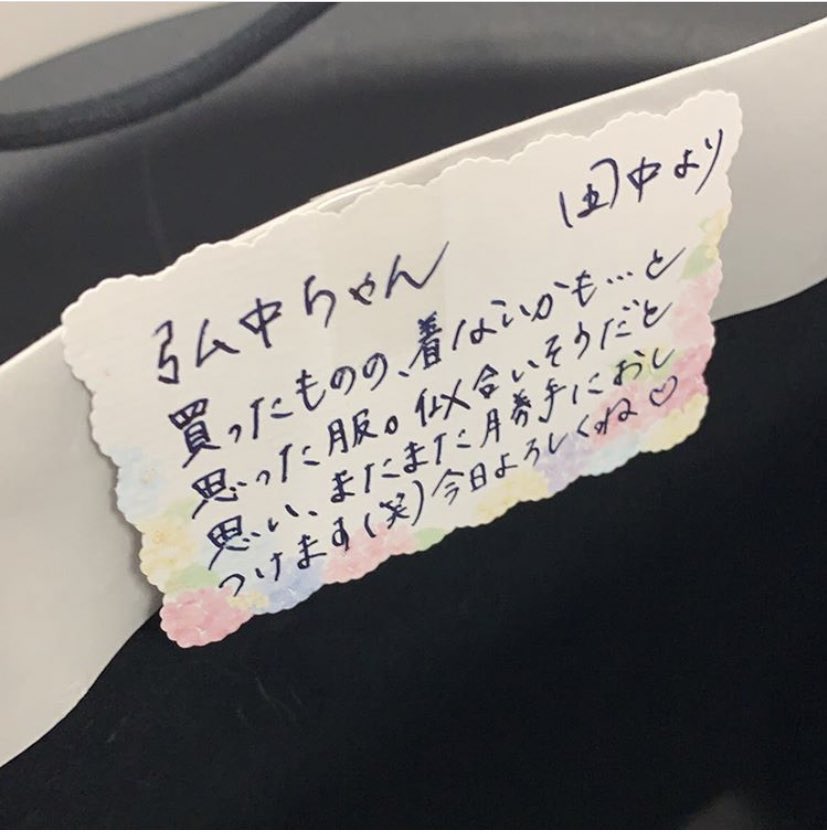 (田)中より
弘中ちゃん
買ったものの、着ないかも…と
思った服。似合いそうだと
思い、またまた勝手におし
つけます(笑)今日よろしくね♡